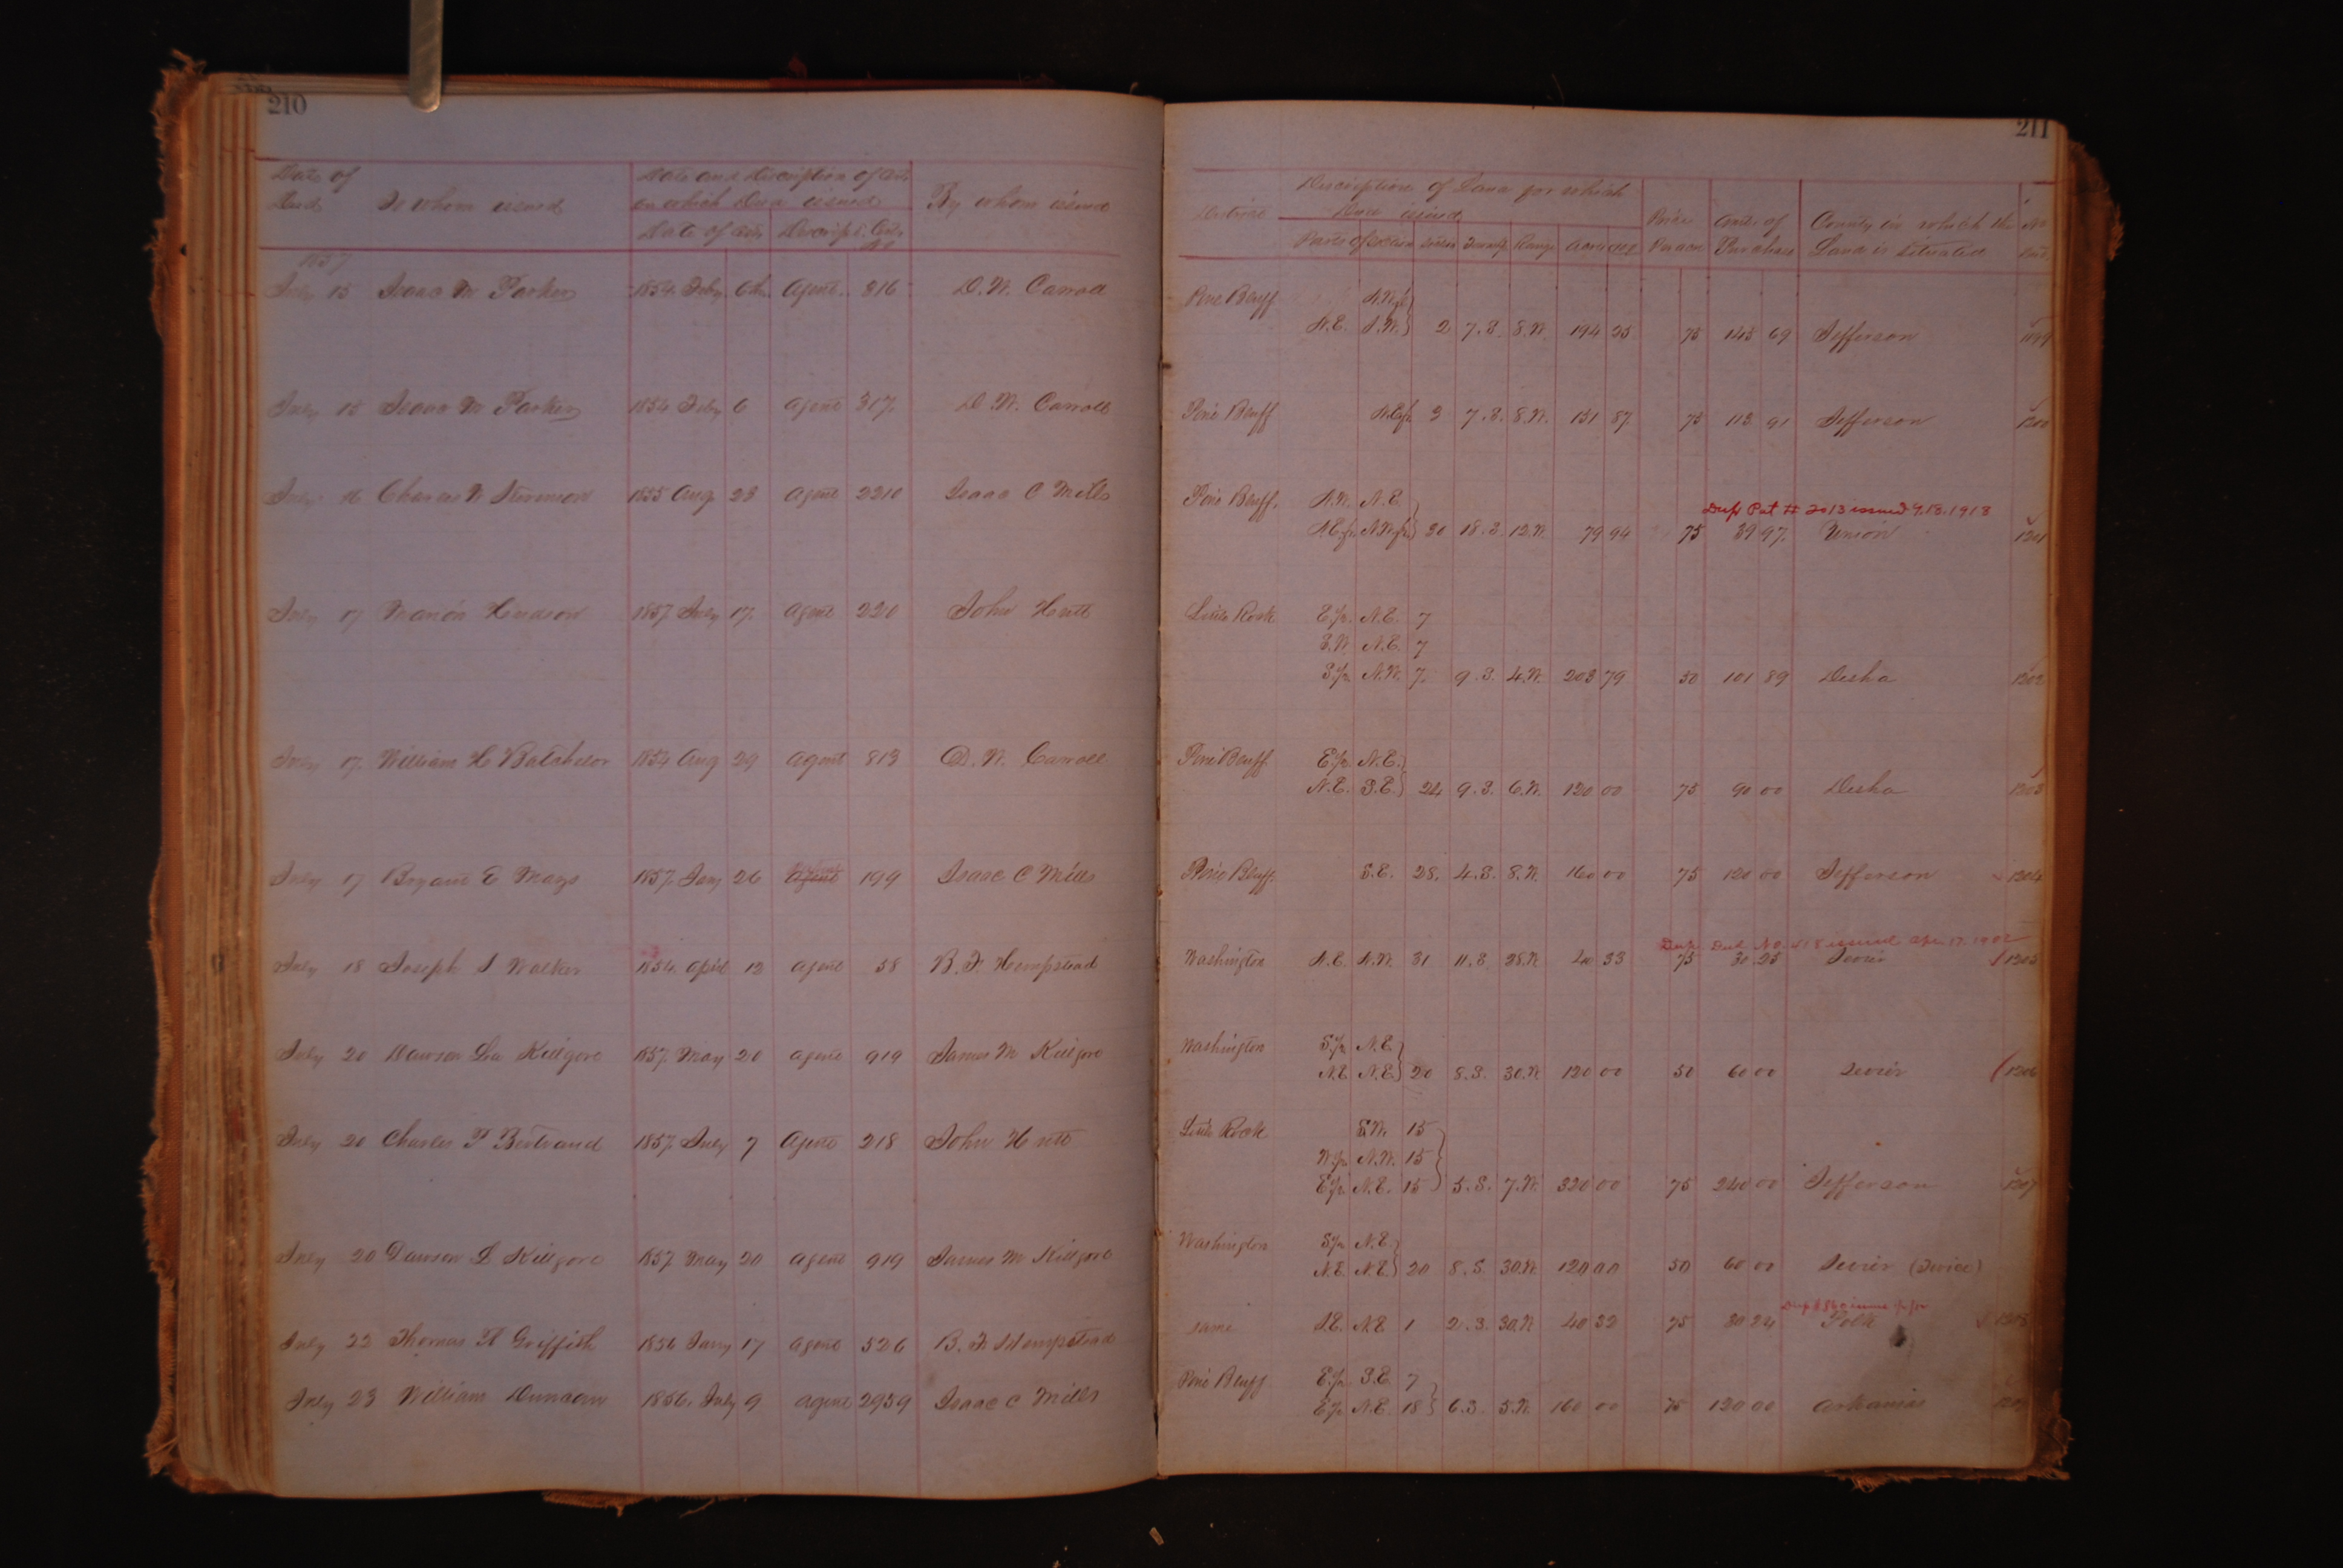 210
Date of Deed
To whom issued
Date and Description of Cert. on which Deed issued
Date of Cert. Descript. Cert. No
By whom issued
1857
July 15 Isaac M Parker 1854 Feby. 6th Agent. 816 D. W. Carroll
July 15 Isaac M Parker 1854 Feby 6 Agent 317 D. W. Carroll
July 16 Charles W Stevenson 1855 Aug. 28 Agent 2210 Isaac C Mills
July 17 Marion Hudson 1857 July 17. Agent 220 John Hutt
July 17. William H Batchelor 1854 Aug 29 Agent 813 D. W. Carroll
July 17 Bryant E Mays 1857. Jany 26 199 Isaac C Mills
July 18 Joseph S Walker 1854. April 12 Agent 58 B. F. Hempstead
July 20 Dawson Lea Killgore 1857. May 20 Agent 919 James M Killgore
July 20 Charles P Bertrand 1857. July 7 Agent 218 John Hutt
July 20 Dawson L Killgore 1857 May 20 Agent 919 James M Killgore
July 22 Thomas A Griffith 1856 Jany 17 Agent 526 B. F. Hempstead
July 23 William Duncan 1856. July 9 Agent 2959 Isaac C Mills
211
District
Description of Land for which Deed issued
Parts of Section Section Township Range Acres
Price Per acre
Amt. of Purchase
County in which the Land is situated
No Deed.
Pine Bluff
N.E. S.W. 2 7.S. 8.W. 194 25 75 145 69 Jefferson 1199
Pine Bluff 3 7.S. 8.W. 151 87 75 113 91 Jefferson 1200
Pine Bluff. N.W. N.E.
Dup Pat # 2013 issued 9.18.1918
30 18.S. 12.W. 79 94 75 39 97. Union 1201
Little Rock E.½. N.E. 7
S.W. N.E. 7
S.½ N.W. 7. 9.S. 4.W. 203 79 50 101 89 Desha 1202
Pine Bluff. E½ N.E.
N.E. S.E. 24 9.S. 6.W. 120 00 75 90 00 Desha 1203
Pine Bluff. S.E. 28. 4.S. 8.W. 160 00 75 120 00 Jefferson 1204
issued Apr. 17. 1902
Washington N.E. N.W. 31 11.S. 28.W 40 33 75 30 25 Sevier 1205
Washington S.½ N.E.
N.E. N.E. 20 8.S. 30.W 120 00 50 60 00 Sevier 1206
Little Rock S.W. 15
W.½ N.W. 15
E½. N.E. 15 5.S. 7.W. 320 00 75 240 00 Jefferson 1207
Washington S½ N.E.
N.E. N.E. 20 8.S. 30.W. 120 00 50 60 00 Sevier (Twice)
same N.E. 1 2.S. 30.W 40 32 75 30 24 Polk 1208
Pine Bluff E.½ S.E. 7
E½ N.E. 18 6.S. 5.W. 160 00 75 120 00 Arkansas 1209